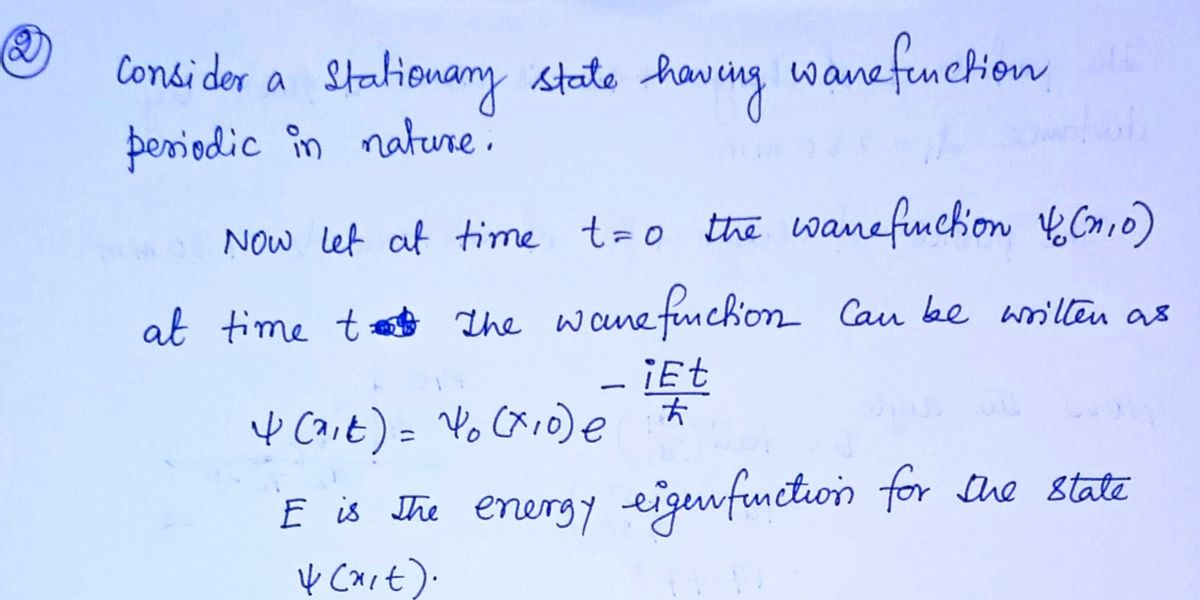 ②
Consider a stationary state having wavefunction
periodic in nature.
Now let at time t=0 the wavefunction ψ₀(x,0)
at time t the wavefunction can be written as
ψ(x,t) = ψ₀(x,0) e^(-iEt/ħ)
E is the energy eigenfunction for the state
ψ(x,t).